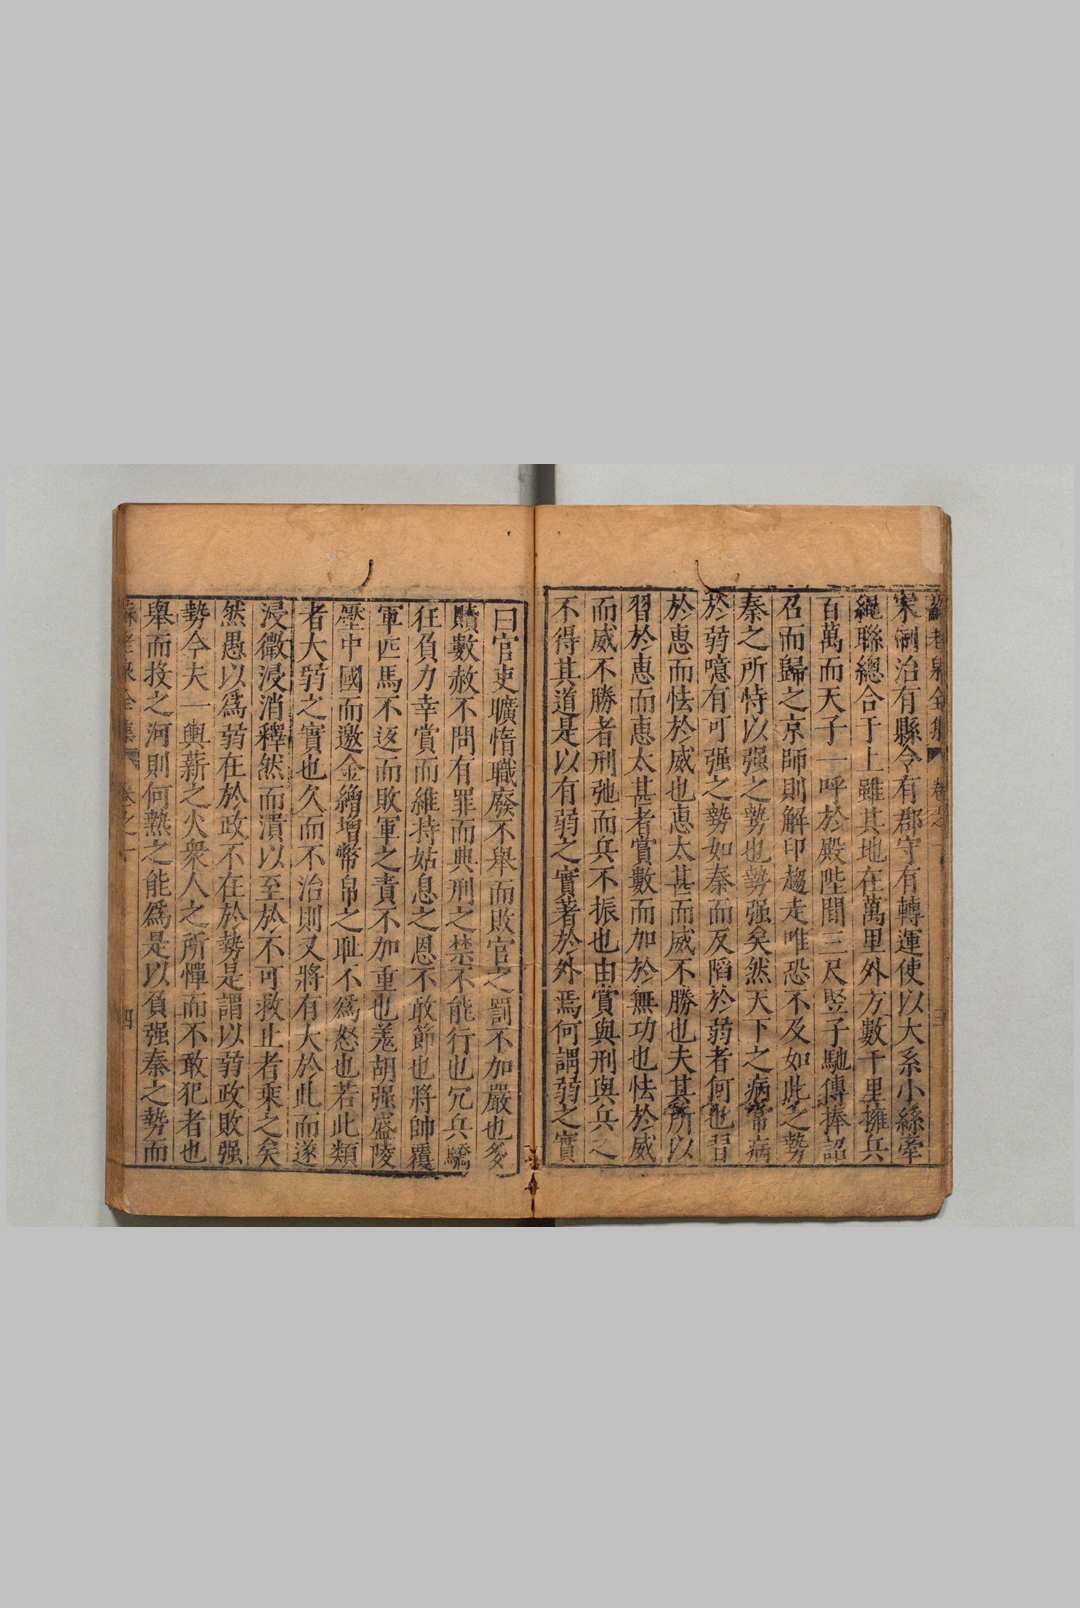 蘇老泉全集 卷之一 三
宋制治有縣令有郡守有轉運使以大系小絲牽
繩聯總合于上雖其地在萬里外方數千里擁兵
百萬而天子一呼於殿陛間三尺竪子馳傳捧詔
召而歸之京師則解印趨走唯恐不及如此之勢
秦之所恃以强之勢也勢强矣然天下之病常病
於弱噫有可强之勢如秦而反陷於弱者何也習
於惠而怯於威也惠太甚而威不勝也夫其所以
習於惠而惠太甚者賞數而加於無功也怯於威
而威不勝者刑弛而兵不振也由賞與刑與兵之
不得其道是以有弱之實著於外焉何謂弱之實
曰官吏曠惰職廢不舉而敗官之罰不加嚴也多
贖數赦不問有罪而典刑之禁不能行也冗兵驕
狂負力幸賞而維持姑息之恩不敢節也將帥覆
軍匹馬不返而敗軍之責不加重也羗胡强盛陵
壓中國而邀金繒增幣帛之耻不爲怒也若此類
者大弱之實也久而不治則又將有大於此而遂
浸微浸消釋然而潰以至於不可救止者乘之矣
然愚以爲弱在於政不在於勢是謂以弱政敗强
勢今夫一輿薪之火衆人之所憚而不敢犯者也
舉而投之河則何熱之能爲是以負强秦之勢而
蘇老泉全集 卷之一 四